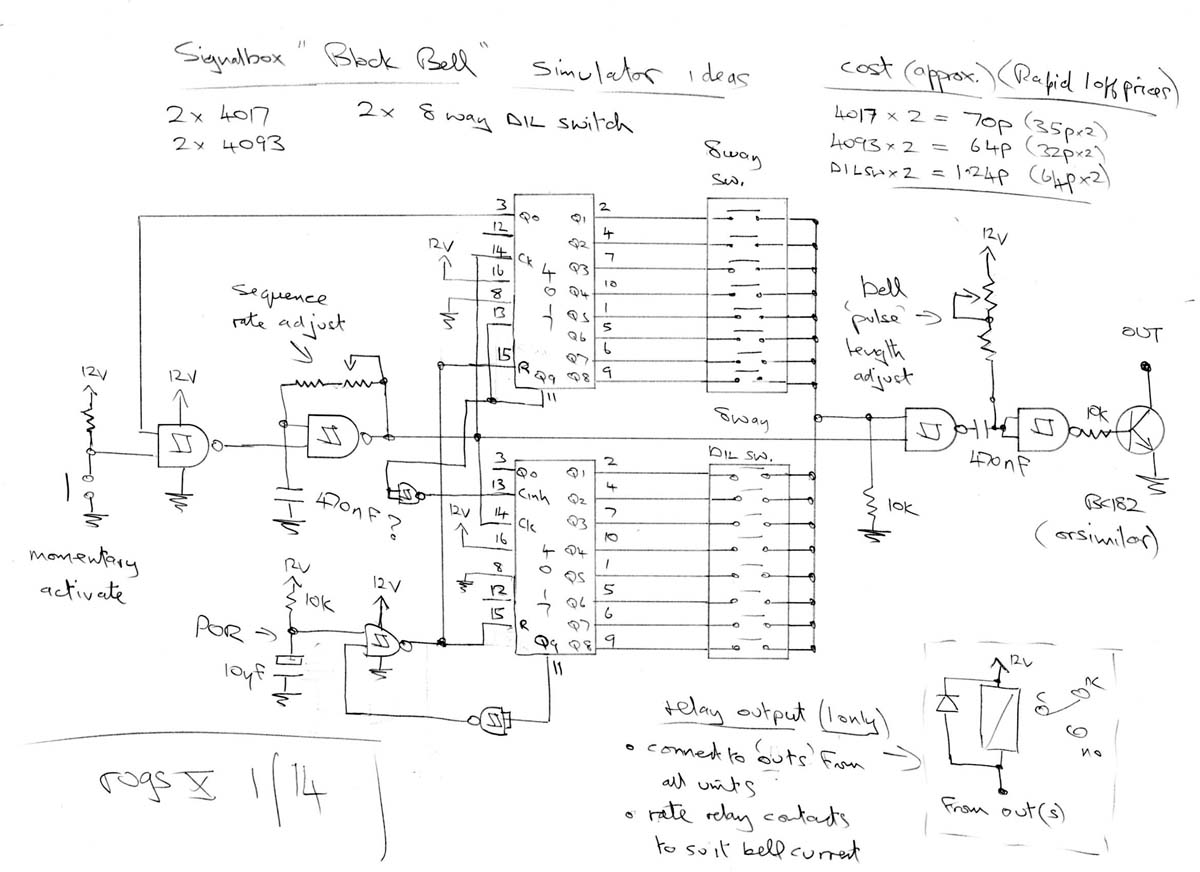 Signalbox "Block Bell" simulator ideas
2 x 4017 2 x 8 way DIL switch
2 x 4093
cost (approx.) (Rapid 1off prices)
4017 x 2 = 70p (35p x 2)
4093 x 2 = 64p (32p x 2)
DILSW x 2 = 1.24p (64p x 2)
8way
sw.
3
Q0
12
14
Ck
12V
16
8
13
15
R
Q9
11
4
0
1
7
Q1 2
Q2 4
Q3 7
Q4 10
Q5 1
Q6 5
Q7 6
Q8 9
sequence
rate adjust
12V
12V
momentary
activate
470nF?
12V
bell
'pulse'
length
adjust
OUT
10k
470nF
BC182
(or similar)
10k
8way
DIL SW.
3
Q0
13
Cinh
14
Clk
12V
16
8
12
15
R
Q9
11
4
0
1
7
Q1 2
Q2 4
Q3 7
Q4 10
Q5 1
Q6 5
Q7 6
Q8 9
12V
10k
12V
POR
10µF
relay output (1 only)
• connect to 'outs' from
all units
• rate relay contacts
to suit bell current
12V
c
nc
no
From out(s)
rogs X 1/14